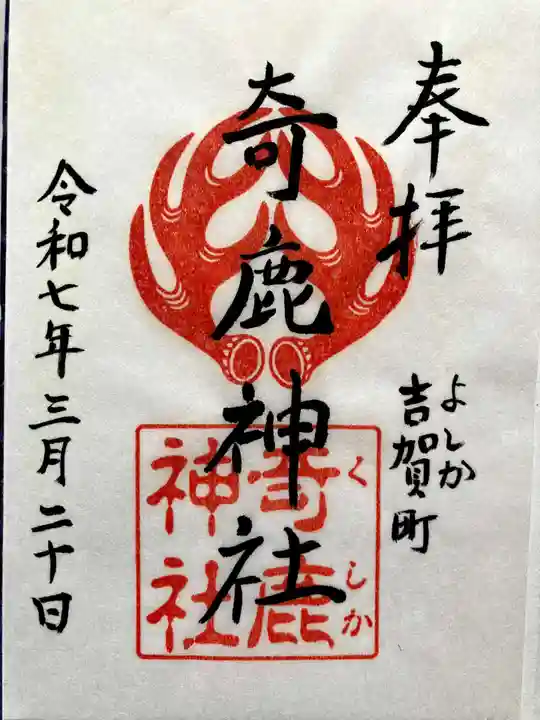 奉拝
よしか
吉賀町
奇鹿神社
奇鹿
くしか
神社
令和七年三月二十日